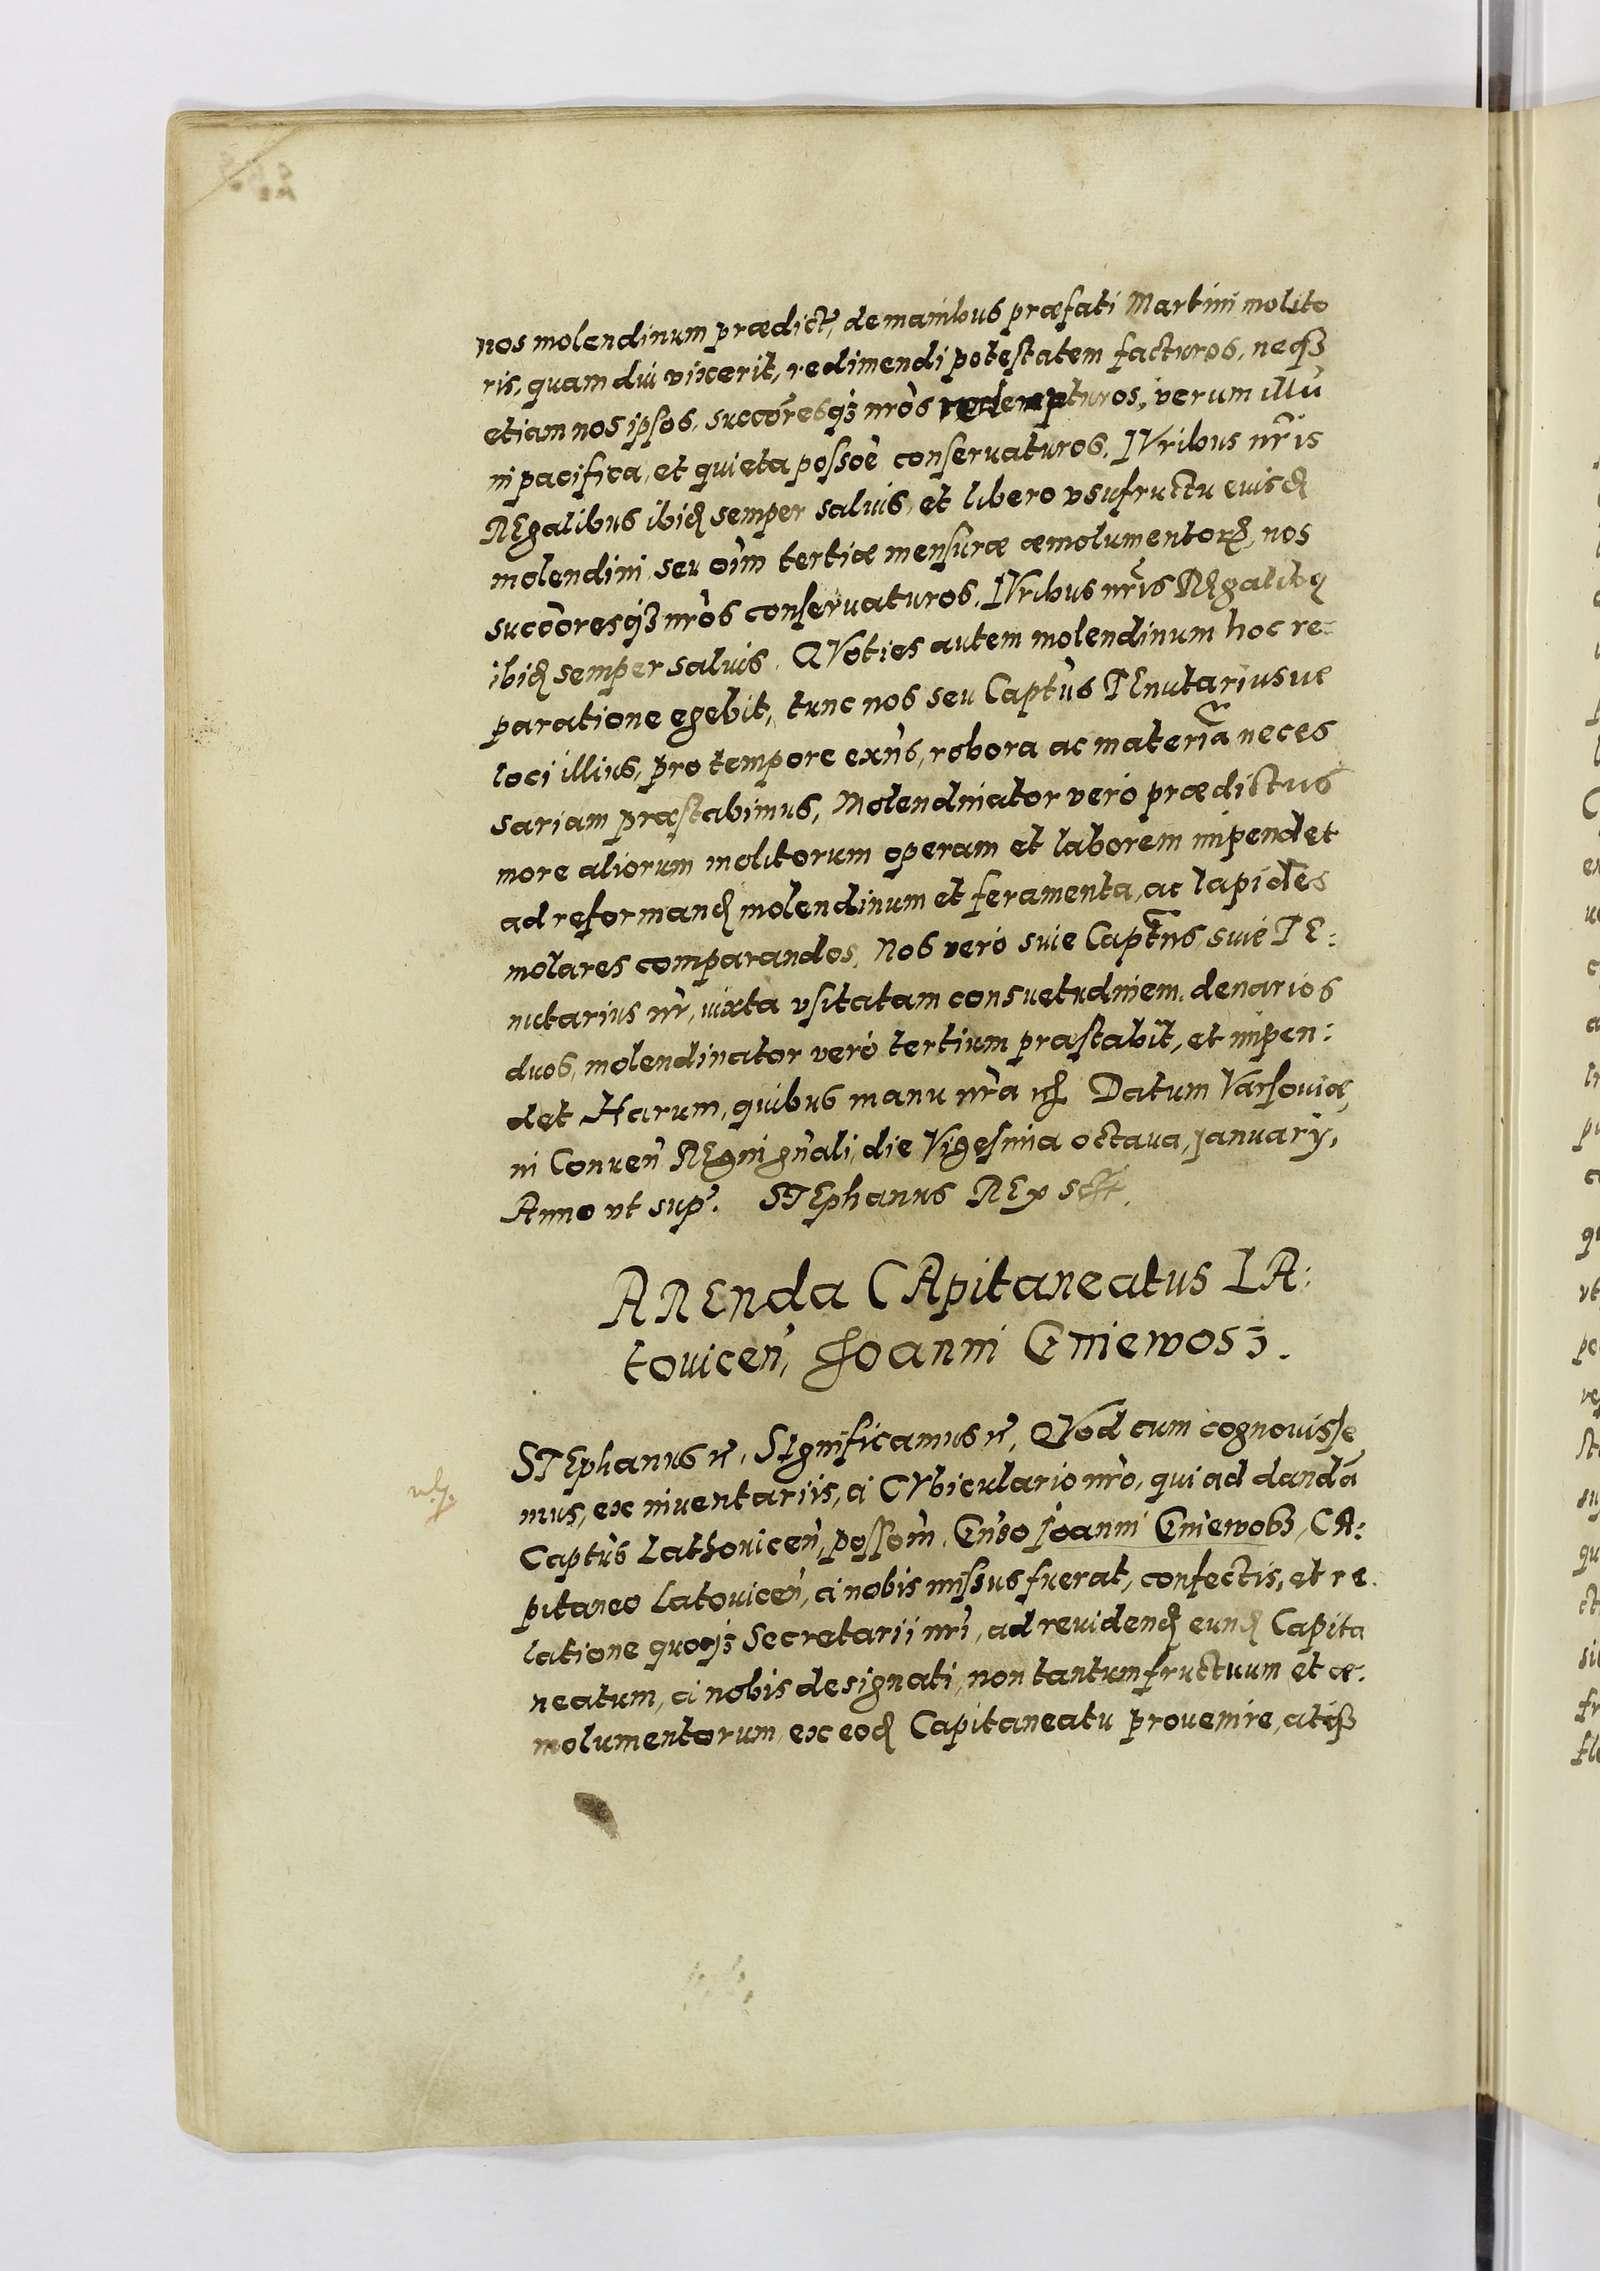 nos molendinum prædict, de manibus præfati Martini molito
ris, quam diu vixerit, redimendi potestatem facturos, neqȝ
etiam nos ipsos, succōresqȝ nr̄os redempturos, verum illū
in pacifica, et quieta possōe conservaturos. IVribus nr̄is
REgalibus ibid semper salvis, et libero vsufructu eiusd
molendini seu oīm tertiæ mensuræ æmolumentorꝝ, nos
succōresqȝ nr̄os conservaturos. IVribus nr̄is REgalibꝫ
ibid semper salvis. QVoties autem molendinum hoc re=
paratione egebit, tunc nos seu Capt̄us TEnutariusve
loci illius, pro tempore exn̄s, robora ac materiā neces
sariam præstabimus, Molendinator verò prædictus
more aliorum molitorum operam et laborem impendet
ad reformand molendinum et feramenta, ac lapides
molares comparandos. Nos verò sive Capt̄ns sive TE:
nutarius nr̄, iuxta vsitatam consuetudinem, denarios
duos, molendinator verò tertium præstabit, et impen:
det Harum, quibus manu nr̄a Datum Varsoviæ,
in Conven̄ REgni gn̄ali, die Vigesima octava, January,
Anno vt sup. STEphanus REx sst.
ARENda CApitaneatus LA:
tovicen̄, Joanni Gniewosz.
STEphanus rc, SIgnificamus rc, QVod cum cognovisse
mus, ex inventariis, à CVbiculario nr̄o, qui ad dandā
Capt̄us Lathovicen̄, possōm, Gn̄so Joanni Gniewosz, CA:
pitaneo Latovicen̄, à nobis missus fuerat, confectis, et re.
latione quoqȝ Secretarii nr̄i, ad revidend eund Capita
neatum, à nobis designati, non tantum fructuum et æ.
molumentorum, ex eod Capitaneatu provenire, atqȝ